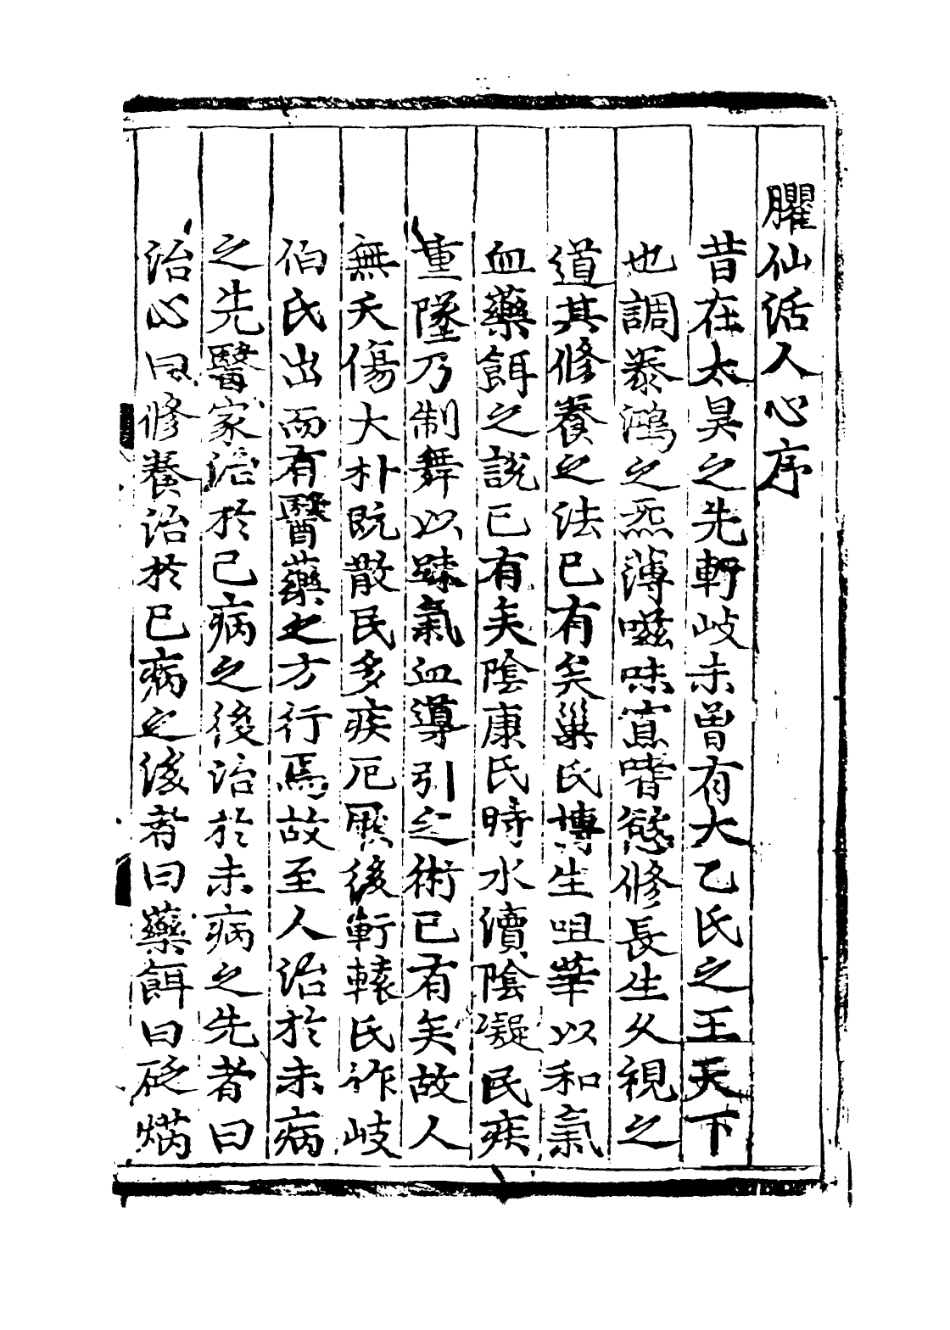 臞仙活人心序
昔在太昊之先軒岐未曾有大乙氏之王天下
也調泰鴻之炁薄嗞味寡嗜慾修長生久視之
道其修養之法已有矣巢氏博生咀華以和氣
血藥餌之說已有矣陰康氏時水瀆陰凝民疾
重墜乃制舞以踈氣血導引之術已有矣故人
無夭傷大朴既散民多疾厄厥後軒轅氏祚岐
伯氏出而有醫藥之方行焉故至人治於未病
之先醫家治於已病之後治於未病之先者曰
治心曰修養治於已病之後者曰藥餌曰砭焫